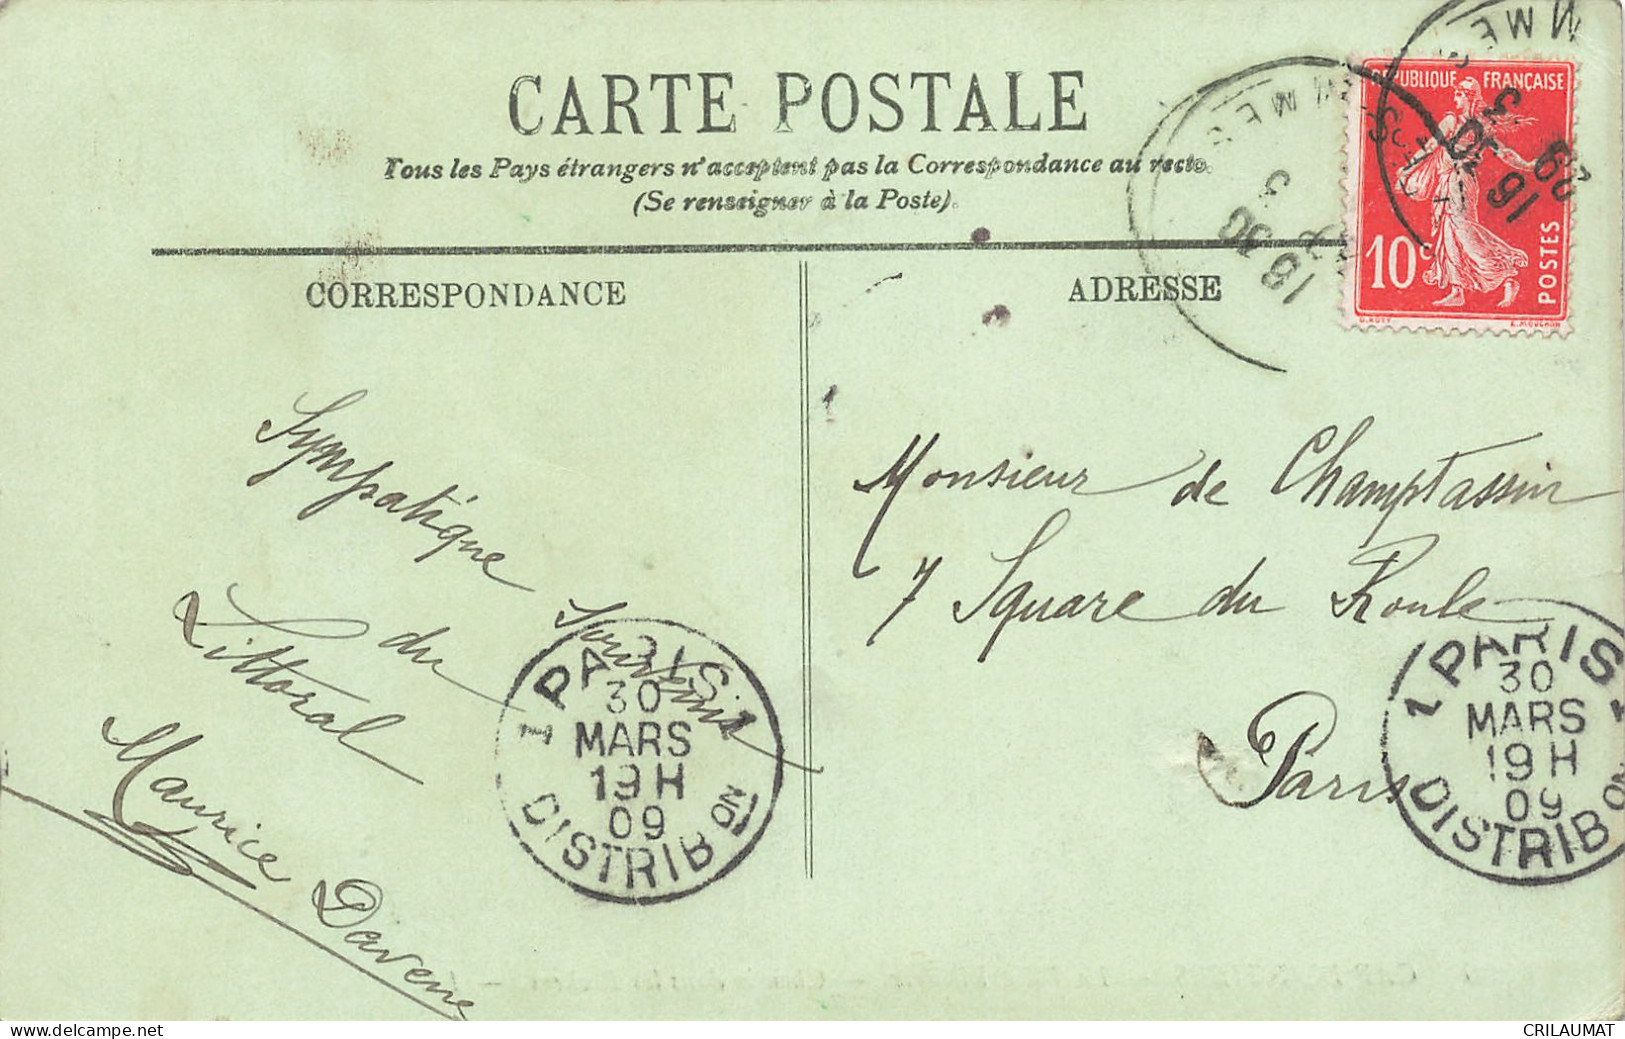 CARTE POSTALE
Tous les Pays étrangers n'acceptent pas la Correspondance au recto.
(Se renseigner à la Poste).
CORRESPONDANCE
ADRESSE
RÉPUBLIQUE FRANÇAISE
10 c
POSTES
O. ROTY
E. MOUCHON
16 30
29 3
18 30
3
Sympatique Souvenir
du
Littoral
Maurice Davene
Monsieur de Champtassin
7 Square du Roule
Paris
1 PARIS 1
30
MARS
19 H
09
DISTRIBON
1 PARIS 1
30
MARS
19 H
09
DISTRIBON
delcampe.net
CRILAUMAT